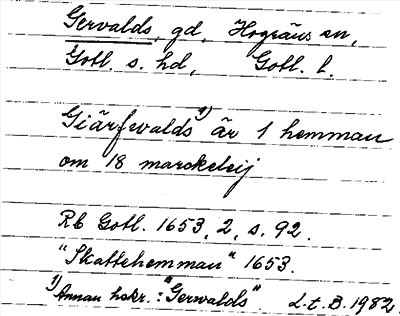 Gervalds, gd, Hogräns sn,
Gotl. s. hd, Gotl. l.
Giärfwalds¹⁾ är 1 hemman
om 18 marckeleij
Rb Gotl. 1653, 2, s. 92.
"Skattehemman" 1653.
¹⁾ Annan hskr.: "Gerwalds" L.t.B. 1982.